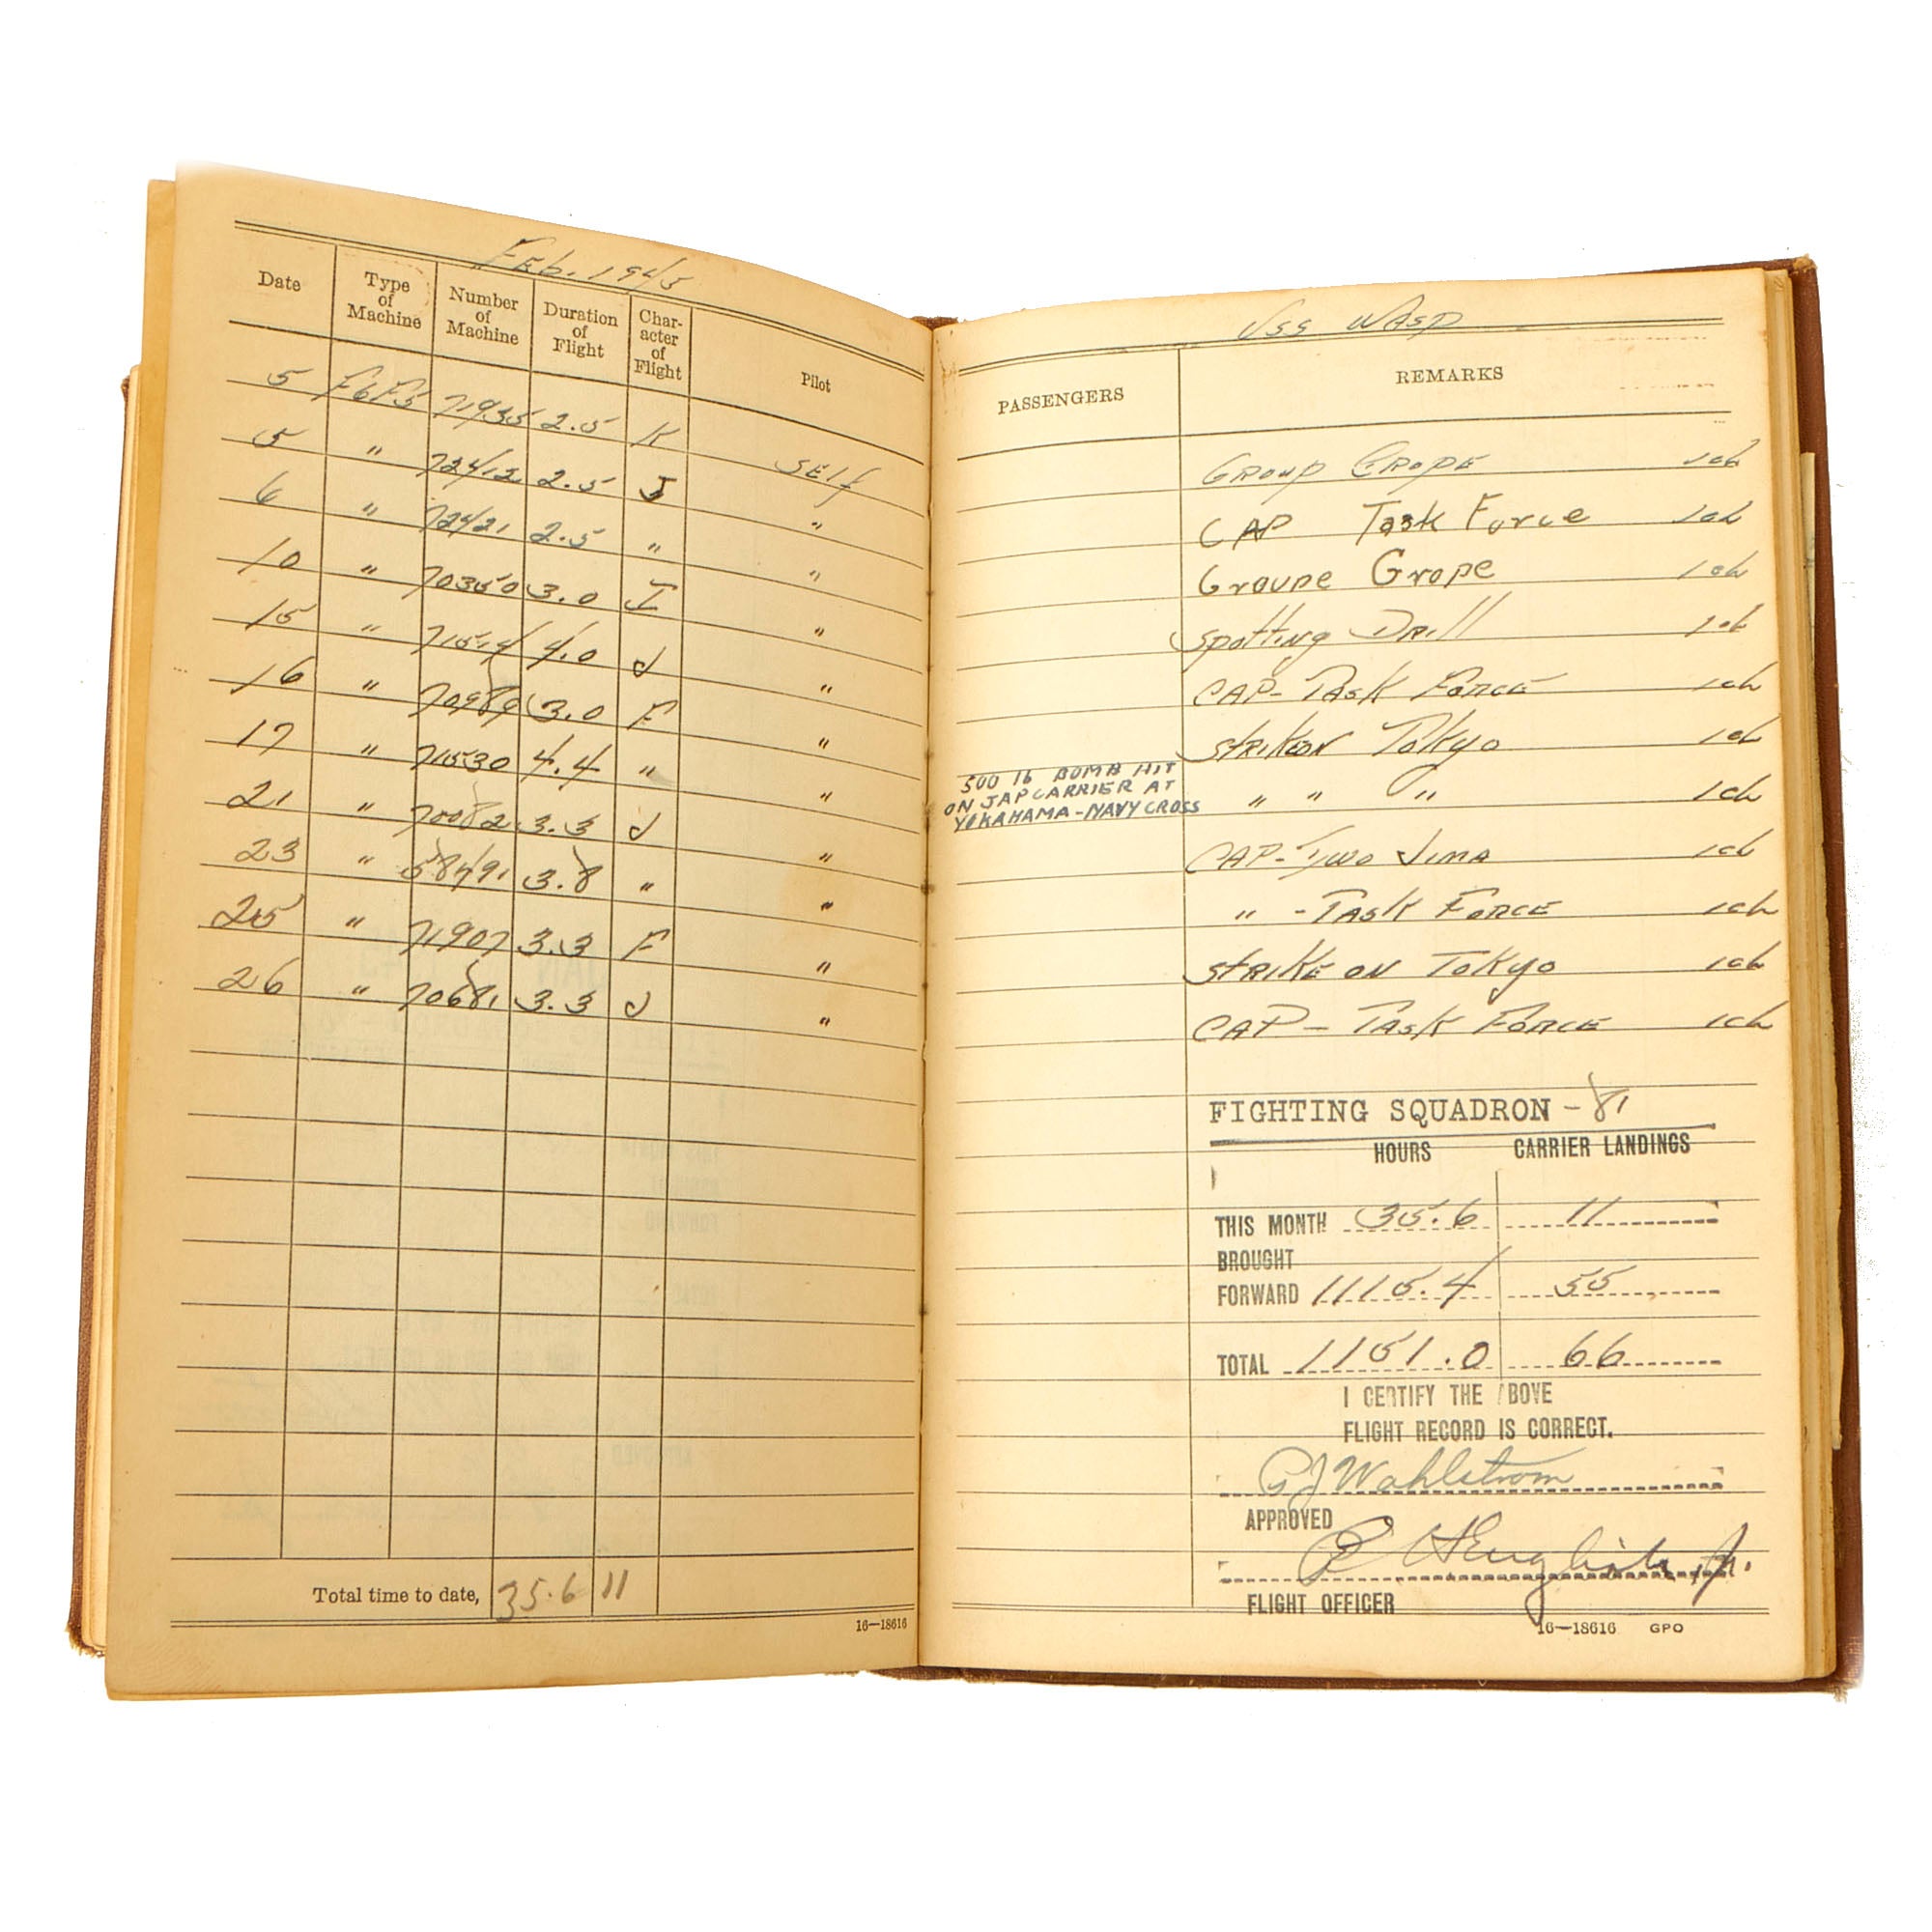 Feb. 1945
Date Type of Machine Number of Machine Duration of Flight Char-acter of Flight Pilot
5 F6F5 71935 2.5 K self
5 " 72412 2.5 J "
6 " 72421 2.5 " "
10 " 70350 3.0 I "
15 " 71514 4.0 J "
16 " 70989 3.0 F "
17 " 71530 4.4 " "
21 " 70082 3.3 J "
23 " 58491 3.8 " "
25 " 71907 3.3 F "
26 " 70681 3.3 J "
Total time to date, 35.6 11
16—18616
USS WASP
PASSENGERS REMARKS
Group Grope 1cL
CAP Task Force 1cL
Groupe Grope 1cL
Spotting Drill 1cL
CAP-Task Force 1cL
Strikeon Tokyo 1cL
500 lb BOMB HIT
ON JAP CARRIER AT
YOKAHAMA-NAVY CROSS
" " " 1cL
CAP-Iwo Jima 1cL
" -Task Force 1cL
Strike on Tokyo 1cL
CAP - Task Force 1cL
FIGHTING SQUADRON - 81
HOURS CARRIER LANDINGS
THIS MONTH 35.6 11
BROUGHT
FORWARD 1115.4 55
TOTAL 1151.0 66
I CERTIFY THE ABOVE
FLIGHT RECORD IS CORRECT.
GJ Wahlstrom
APPROVED
English, Jr.
FLIGHT OFFICER
16—18616 GPO